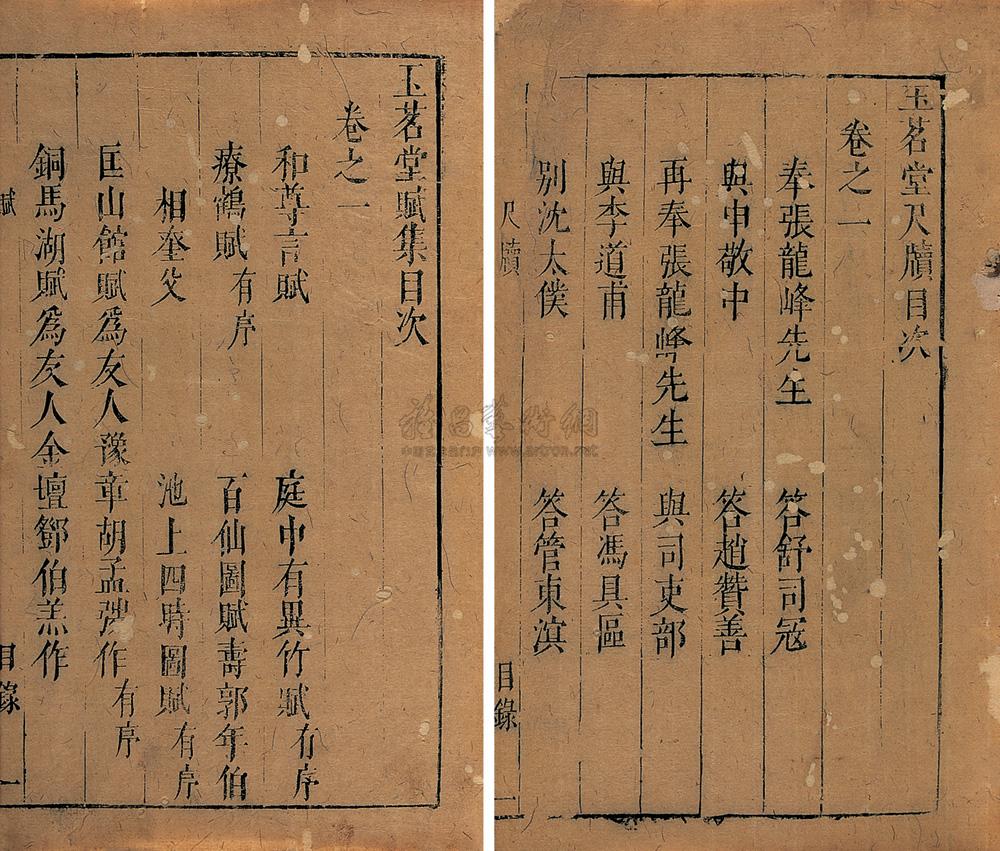 玉茗堂尺牘目次
卷之一
奉張龍峰先生 答舒司寇
與申敬中 答趙贊善
再奉張龍峰先生 與司吏部
與李道甫 答馮具區
別沈太僕 答管東溟
尺牘 目錄 一
玉茗堂賦集目次
卷之一
和尊言賦 庭中有異竹賦有序
療鶴賦有序 百仙圖賦壽郭年伯
相奎父 池上四時圖賦有序
匡山館賦爲友人豫章胡孟弢作有序
銅馬湖賦爲友人金壇鄧伯羔作
賦 目錄 一
www.artron.net